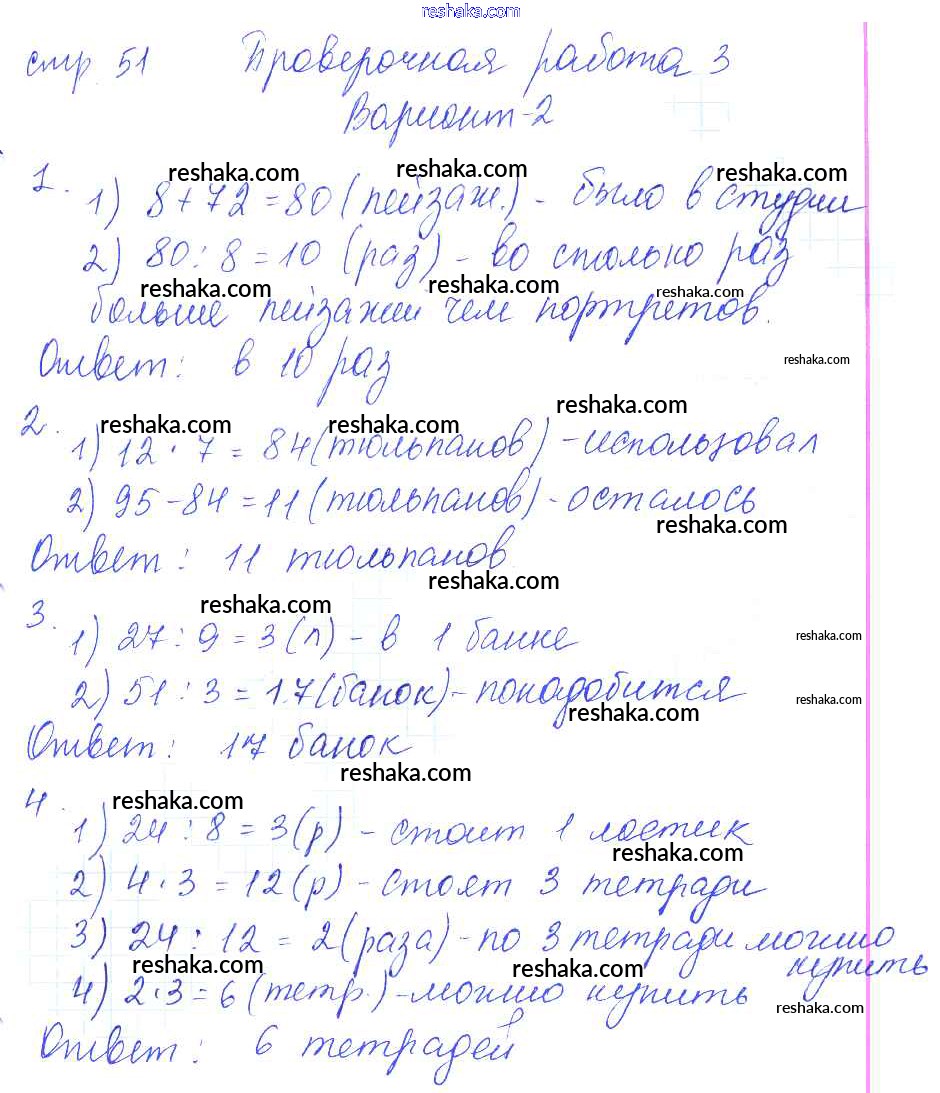 reshaka.com
стр. 51 Проверочная работа 3
Вариант-2
reshaka.com reshaka.com reshaka.com
1. 1) 8+72=80 (пейзаж.) - было в студии
2) 80:8=10 (раз) - во столько раз
reshaka.com reshaka.com reshaka.com
больше пейзажей чем портретов.
Ответ: в 10 раз
reshaka.com
reshaka.com reshaka.com reshaka.com
2. 1) 12·7=84 (тюльпанов) - использовал
2) 95-84=11 (тюльпанов) - осталось
reshaka.com
Ответ: 11 тюльпанов
reshaka.com
reshaka.com
3. 1) 27:9=3 (л) - в 1 банке
reshaka.com
2) 51:3=17 (банок) - понадобится
reshaka.com reshaka.com
Ответ: 17 банок
reshaka.com
reshaka.com
4. 1) 24:8=3 (р) - стоит 1 ластик
reshaka.com
2) 4·3=12 (р) - стоят 3 тетради
3) 24:12=2 (раза) - по 3 тетради можно
купить
reshaka.com reshaka.com
4) 2·3=6 (тетр.) - можно купить
reshaka.com
Ответ: 6 тетрадей